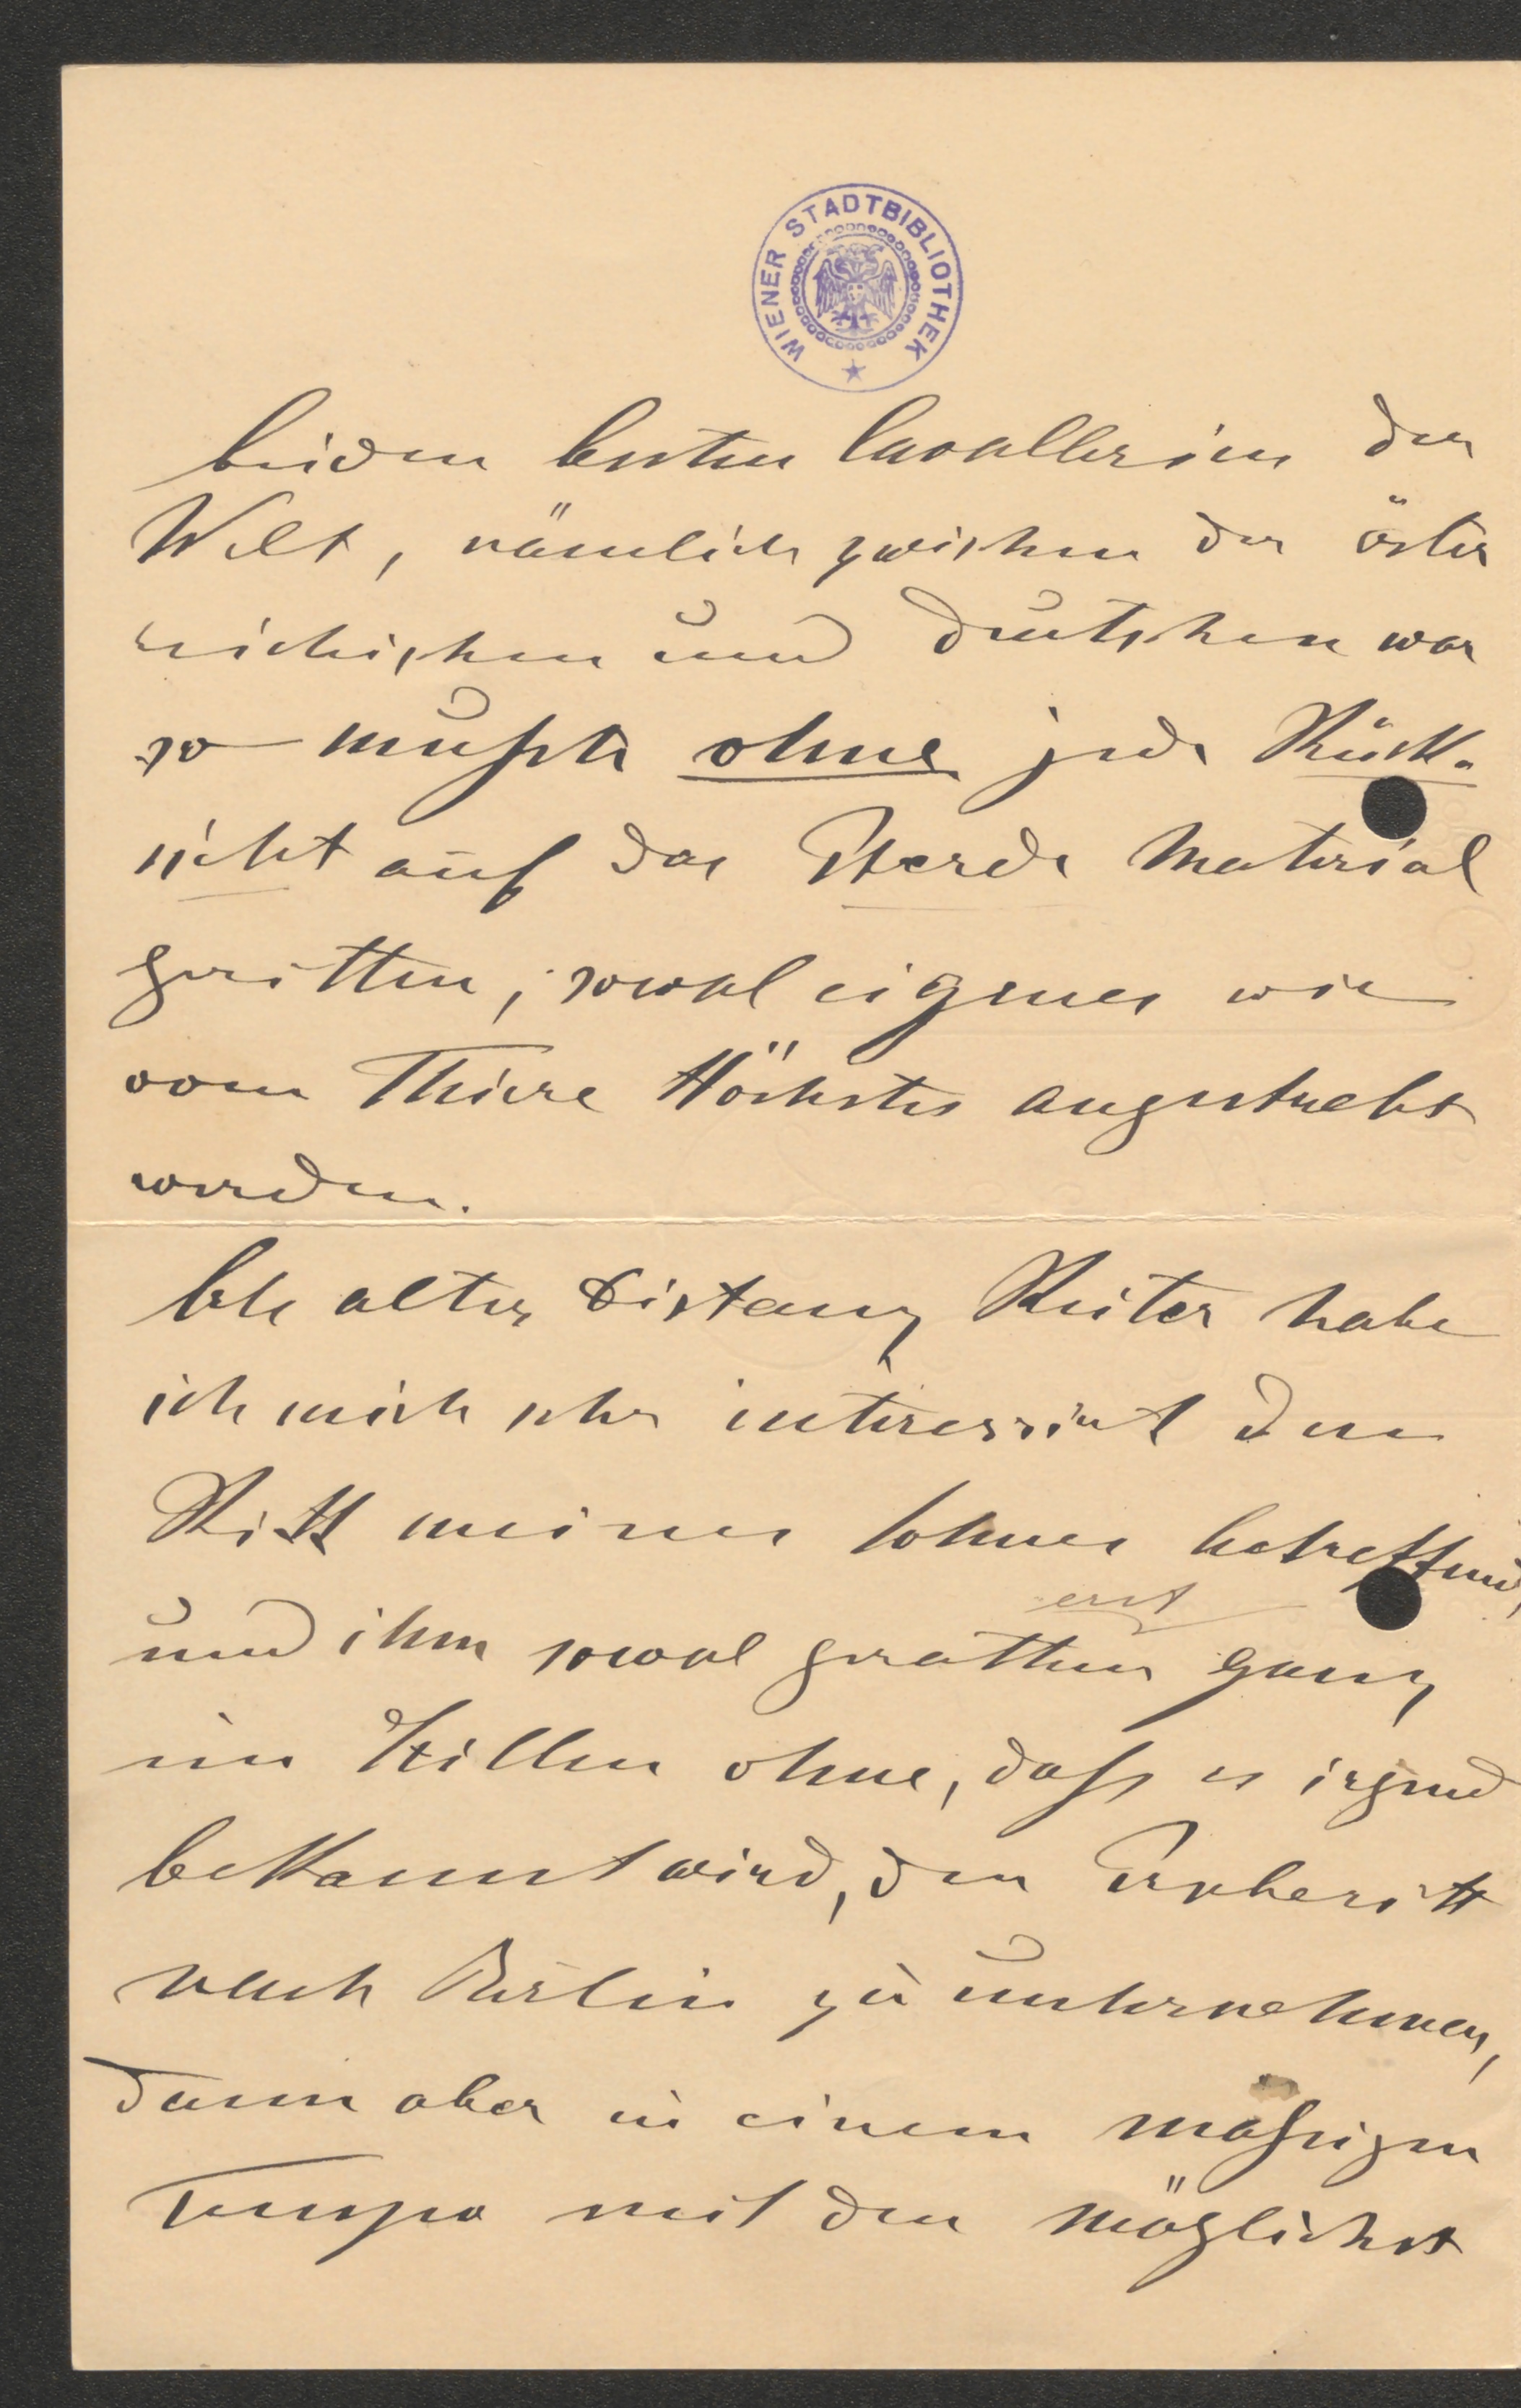 WIENER STADTBIBLIOTHEK
beiden besten Cavallerien der
Welt, nämlich zwischen der öster
reichischen und deutschen war
so mußte ohne jede Rück-
sicht auf das Pferde Material
geritten, sowol eigenes wie
vom Thiere Höchstes angestrebt
werden.
Als alter Distanz Reiter habe
ich mich sehr interessirt den
Ritt meines Sohnes betreffend,
erst
und ihm sowol gerathen ganz
im Stillen ohne, daß es irgend
bekannt wird, den Proberitt
nach Berlin zu unternehmen,
dann aber in einem mäßigen
Tempo mit den möglichst